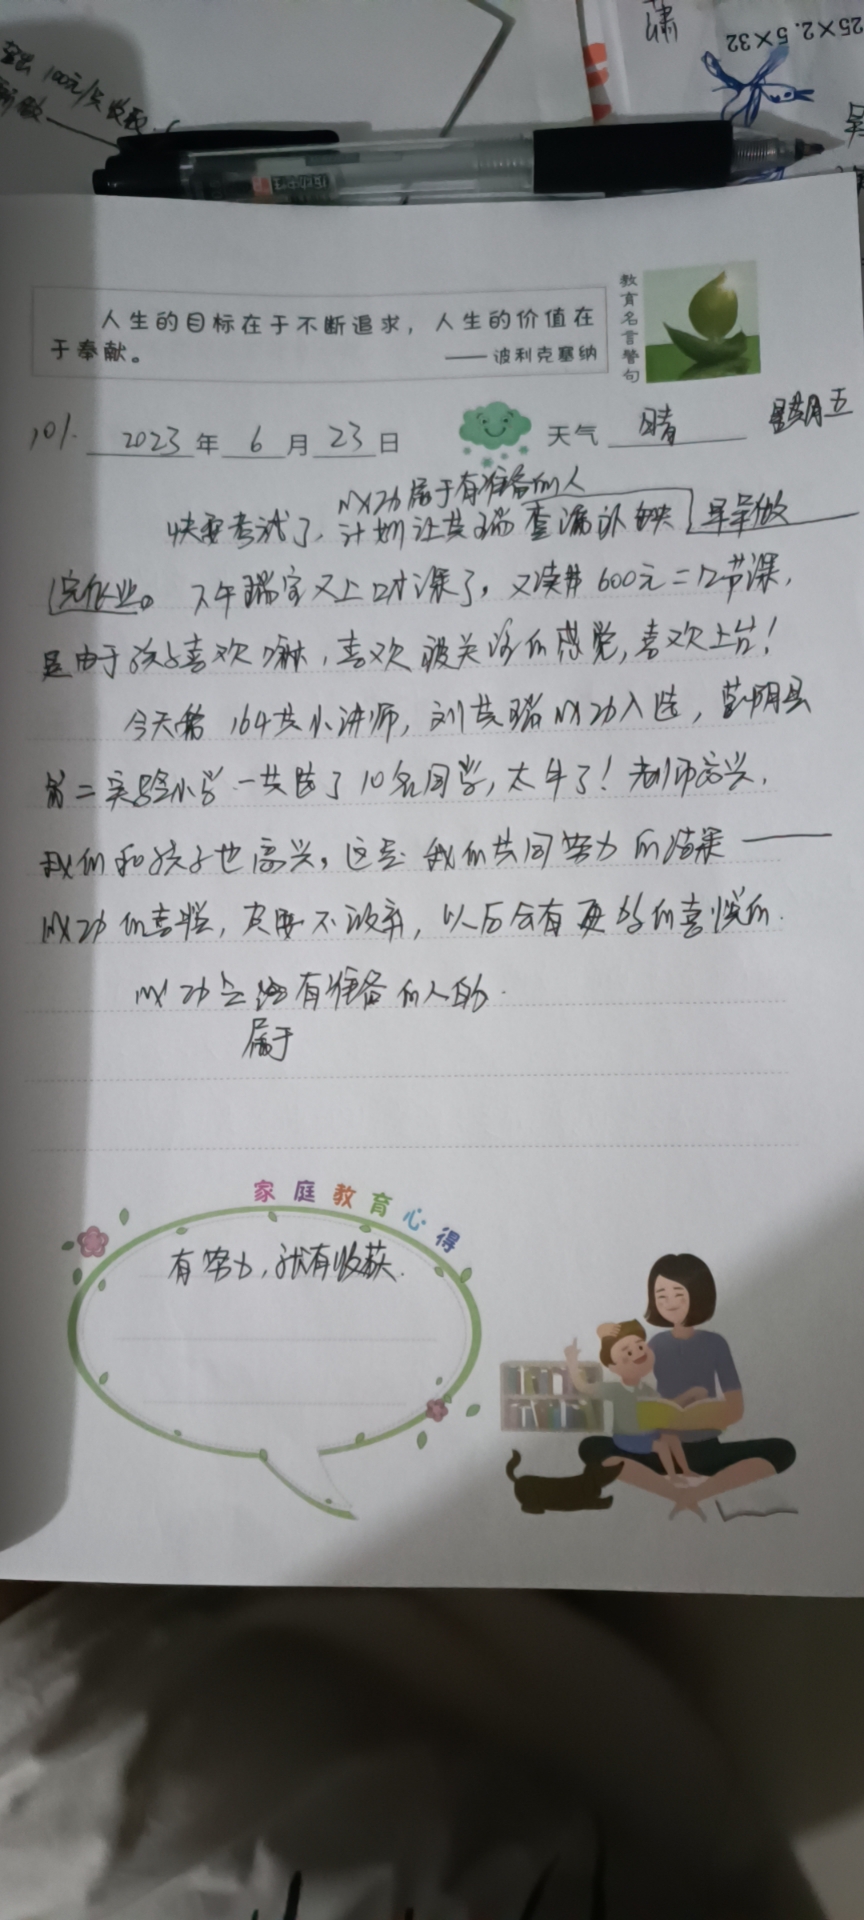 25×2.5×32
100元/
人生的目标在于不断追求，人生的价值在
于奉献。 ——波利克塞纳
教育名言警句
101. 2023年6月23日 天气 晴 星期五
成功属于有准备的人
快要考试了，计划让英瑞查漏补缺 早早做
完作业。下午瑞宝又上口才课了，又续费600元=12节课，
是由于孩子喜欢嘛，喜欢被关注的感觉，喜欢上台！
今天第164英小讲师，刘英瑞成功入选，蒙阴县
第二实验小学一共选了10名同学，太牛了！老师高兴，
我们和孩子也高兴。这是我们共同努力的结果——
成功的喜悦，只要不放弃，以后会有更多的喜悦的.
成功是给有准备的人的.
属于
家庭教育心得
有努力，就有收获.